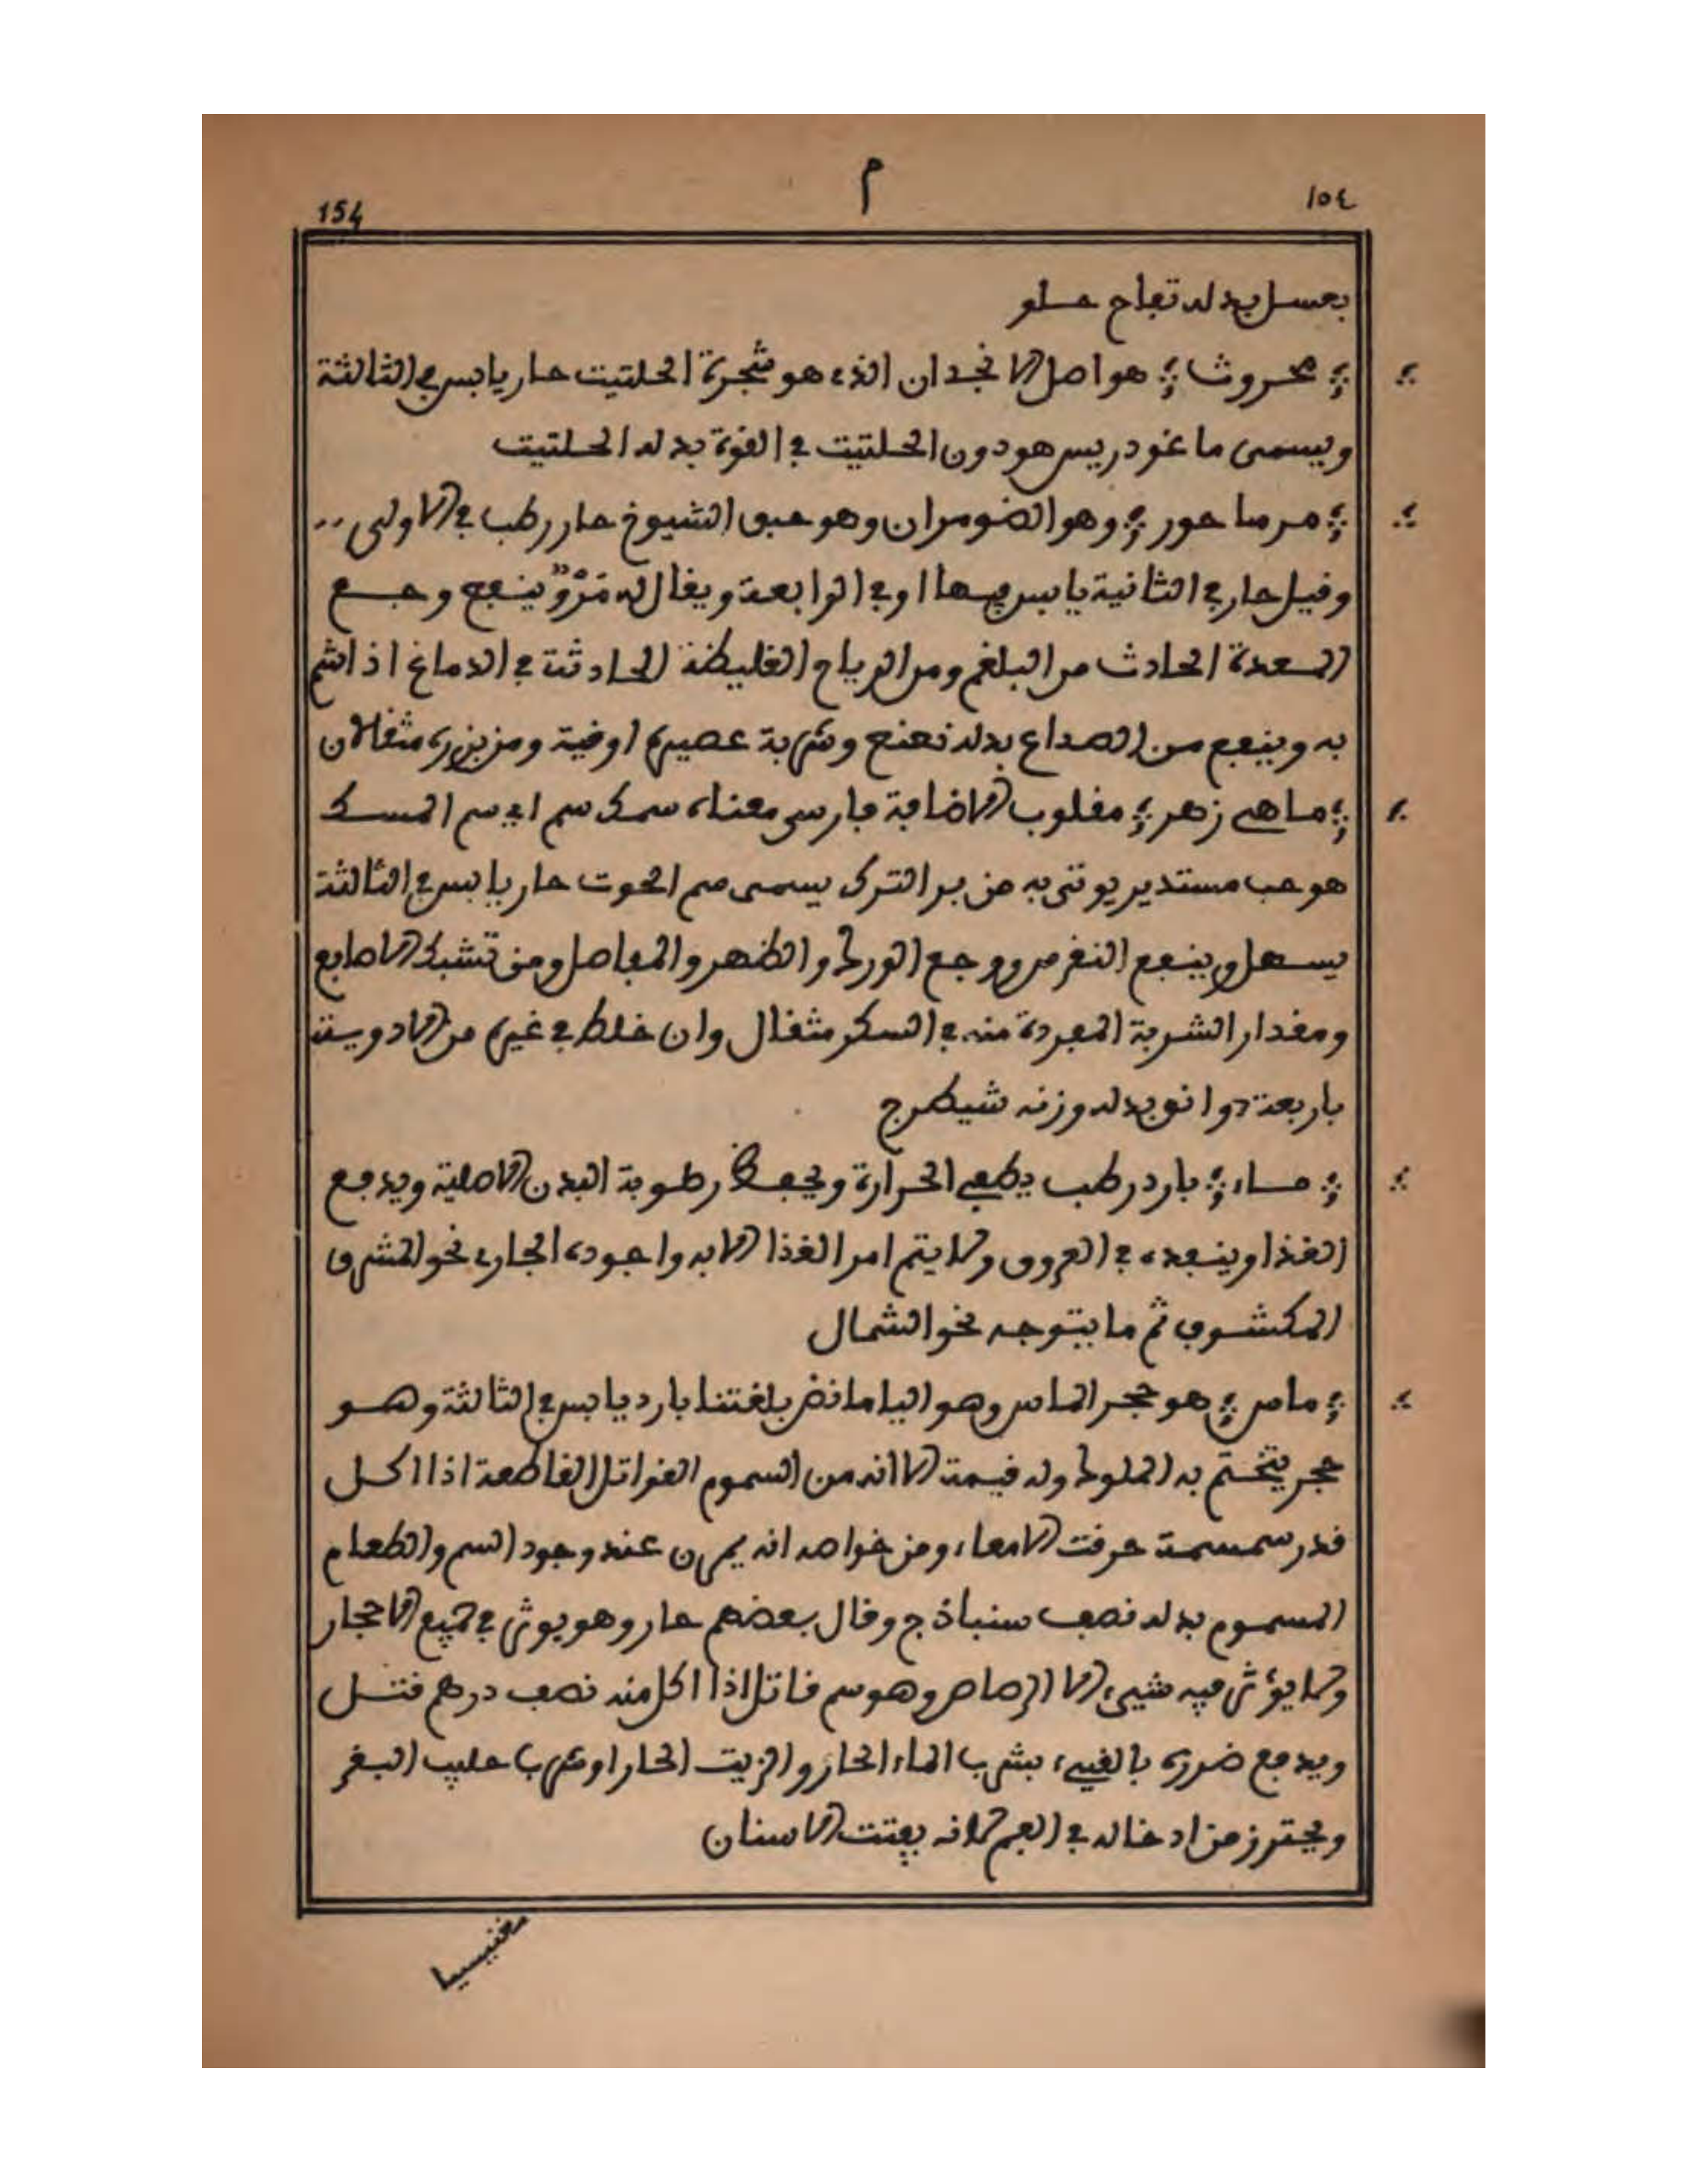 م
154
١٥٤
بعسل بدله تفاح حلو
؞ محروث ؞ هو اصل الانجدان الذي هو شجرة الحلتيت حار يابس في الثالثة
ويسمى ماغودريس هو دون الحلتيت في القوة بدله الحلتيت
؞ مرماحور ؞ وهو الضومران وهو حبق الشيوخ حار رطب في الاولى
وقيل حار في الثانية يابس فيها او في الرابعة ويقال له مَرْوٌ ينفع وجع
المعدة الحادث من البلغم ومن الرياح الغليظة الحادثة في الدماغ اذا شم
به وينفع من الصداع بدله نعنع وشربة عصيره اوقية ومن بزره مثقالان
؞ ماهي زهر ؞ مقلوب الاضافة فارسي معناه سمك سم اي سم السمك
هو حب مستدير يوتى به من بر الترك يسمى سم الحوت حار يابس في الثالثة
يسهل وينفع النقرس ووجع الورك والظهر والمفاصل ومن تشبك الاصابع
ومقدار الشربة المفردة منه في السكر مثقال وان خلط في غيره من الادوية
باربعة دوانق بدله وزنه شيطرج
؞ ماء ؞ بارد رطب يطفي الحرارة ويحفظ رطوبة البدن الاصلية ويدفع
الغذا وينفده في العروق ولا يتم امر الغذا الا به واجوده الجاري نحو المشرق
المكشوف ثم ما يتوجه نحو الشمال
؞ ماس ؞ هو حجر الماس وهو اليامانض بلغتنا بارد يابس في الثالثة وهو
حجر يتختم به الملوك وله قيمة الا انه من السموم القواتل القاطعة اذا اكل
قدر سمسمة خرقت الامعاء ومن خواصه انه يعرق عند وجود السم والطعام
المسموم بدله نصف سنباذج وقال بعضهم حار وهو يوثر في جميع الاحجار
ولا يؤثر فيه شيء الا الرصاص وهو سم قاتل اذا اكل منه نصف درهم قتل
ويدفع ضرره بالقيء بشرب الماء الحار والزيت الحار او شرب حليب البقر
ويحترز من ادخاله في الفم لانه يفتت الاسنان
مغنيسيا